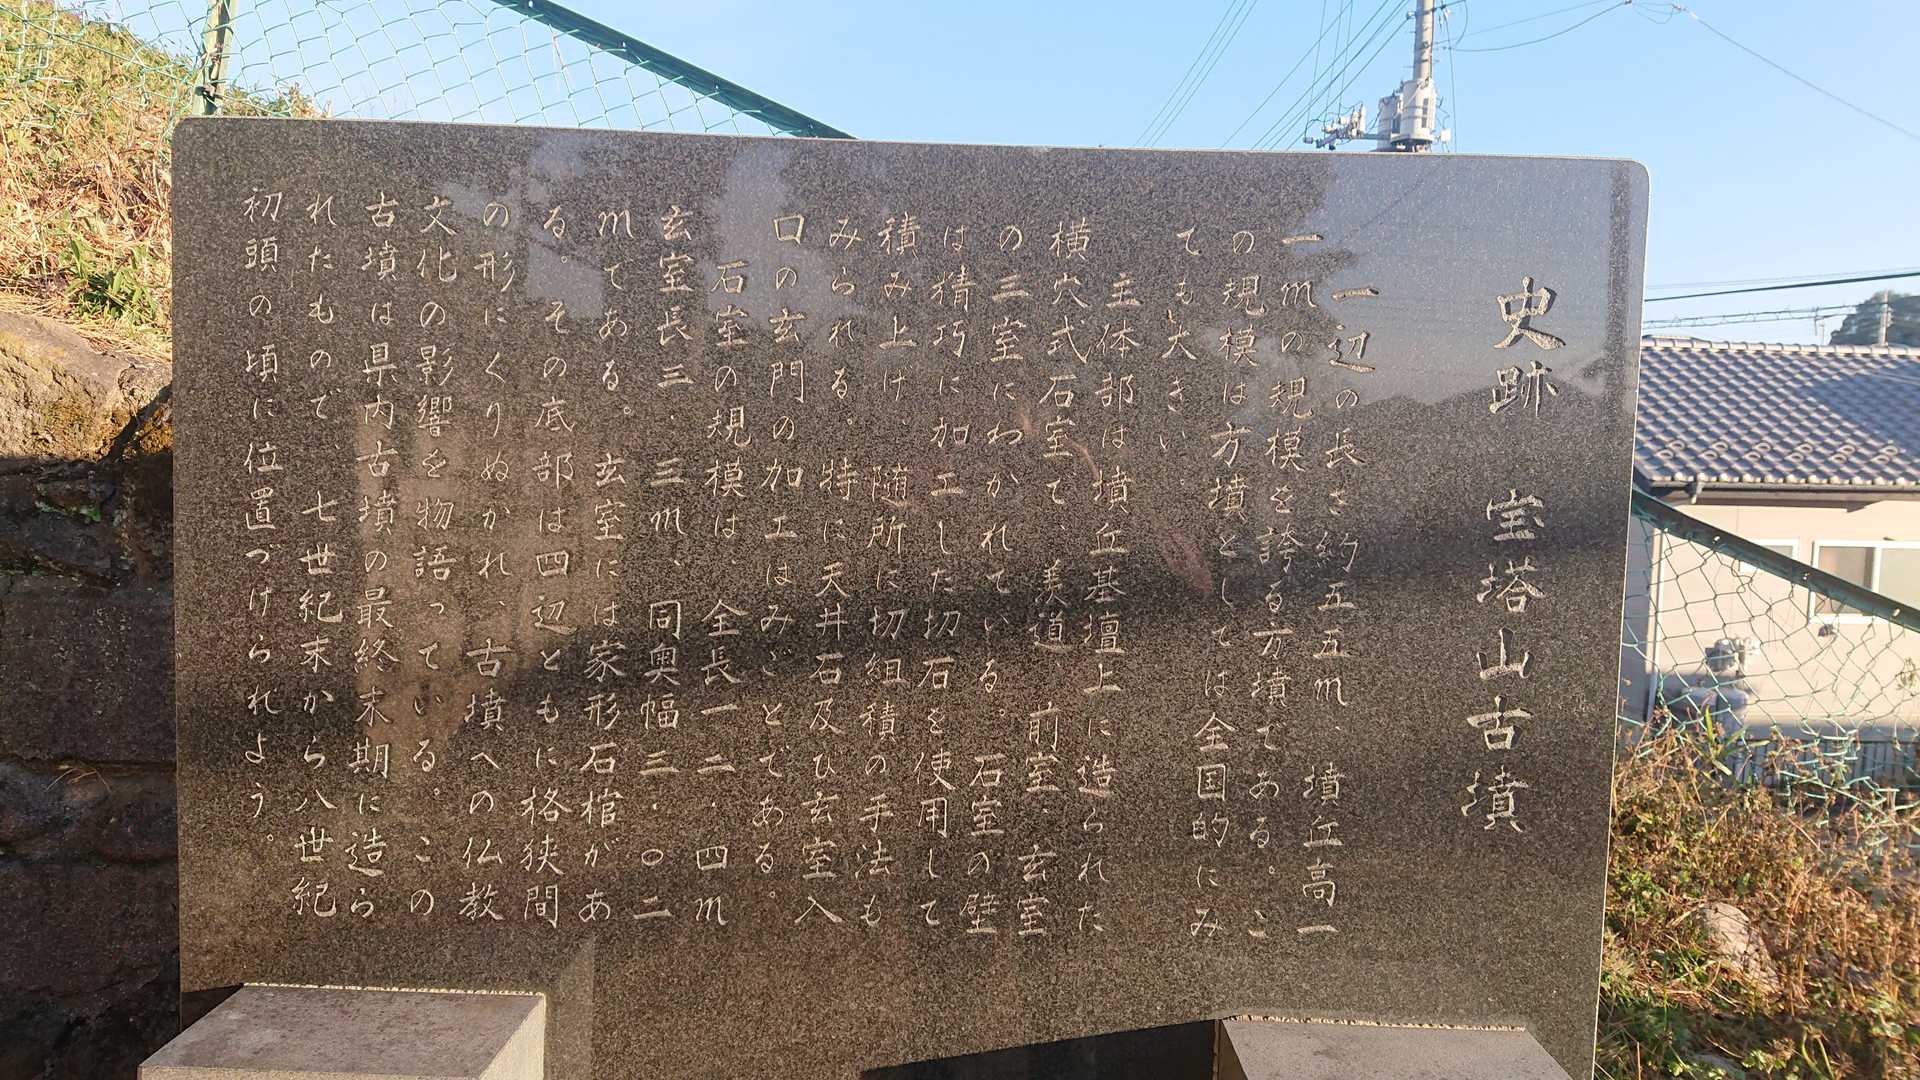 史跡 宝塔山古墳
一辺の長さ約五五m、墳丘高一
一mの規模を誇る方墳である。こ
の規模は方墳としては全国的にみ
ても大きい。
主体部は墳丘基壇上に造られた
横穴式石室で、羨道、前室、玄室
の三室にわかれている。石室の壁
は精巧に加工した切石を使用して
積み上げ、随所に切組積の手法も
みられる。特に天井石及び玄室入
口の玄門の加工はみごとである。
石室の規模は、全長一二.四m
玄室長三.三m、同奥幅三.〇二
mである。玄室には家形石棺があ
る。その底部は四辺ともに格狭間
の形にくりぬかれ、古墳への仏教
文化の影響を物語っている。この
古墳は県内古墳の最終末期に造ら
れたもので、七世紀末から八世紀
初頭の頃に位置づけられよう。